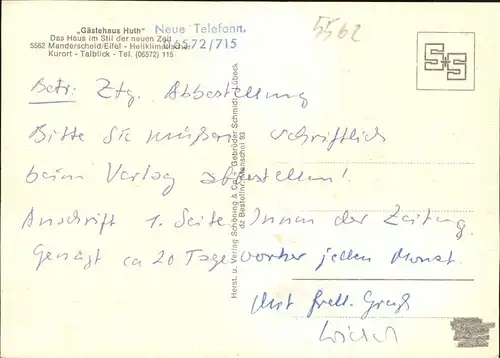 „Gästehaus Huth"
Das Haus im Stil der neuen Zeit
5562 Manderscheid/Eifel - Heilklimatischer
Kurort - Talblick - Tel. (06572) 115
Neue Telefonn.
06572/715
5562
Betr: Ztg. Abbestellung
Bitte Sie müßen schriftlich
beim Verlag abbestellen!
Anschrift 1. Seite Innen der Zeitung.
Genügt ca 20 Tage vorher jeden Monat.
Mit frdl. Gruß
Herst. u. Verlag Schöning & Co + Gebrüder Schmidt, Lübeck
dz Bestellnr. Mansche 93